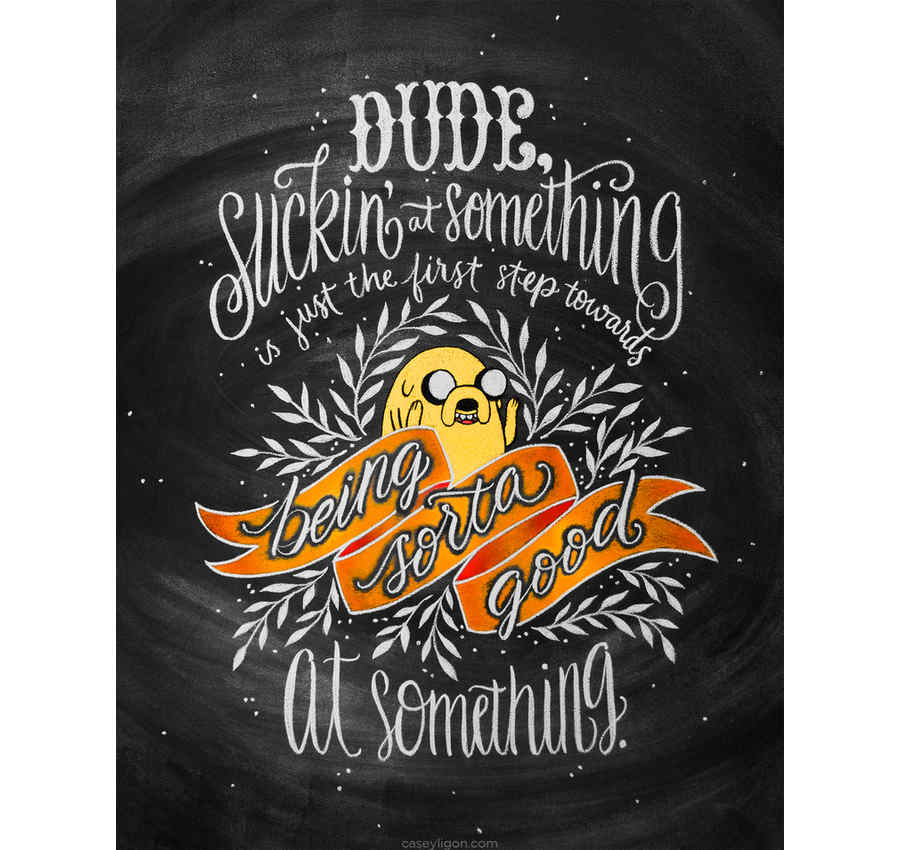 DUDE,
Suckin' at something
is just the first step towards
being
sorta
good
at something.
caseyligon.com